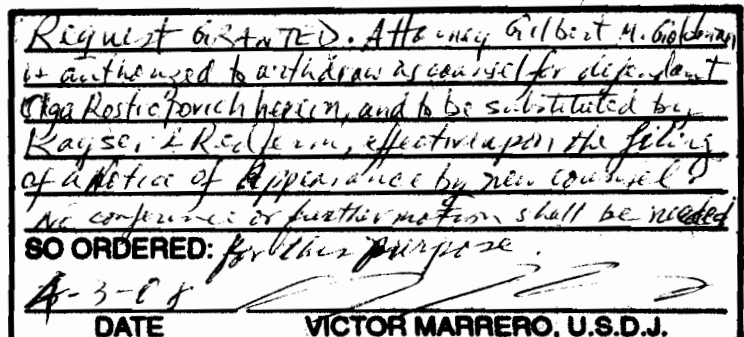 Request GRANTED. Attorney Gilbert M. Goldman
is authorized to withdraw as counsel for defendant
Olga Rostropovich herein, and to be substituted by
Kayser & Redfern, effective upon the filing
of a Notice of Appearance by new counsel.
No conference or further motion shall be needed
SO ORDERED: for this purpose.
4-3-08
DATE VICTOR MARRERO, U.S.D.J.